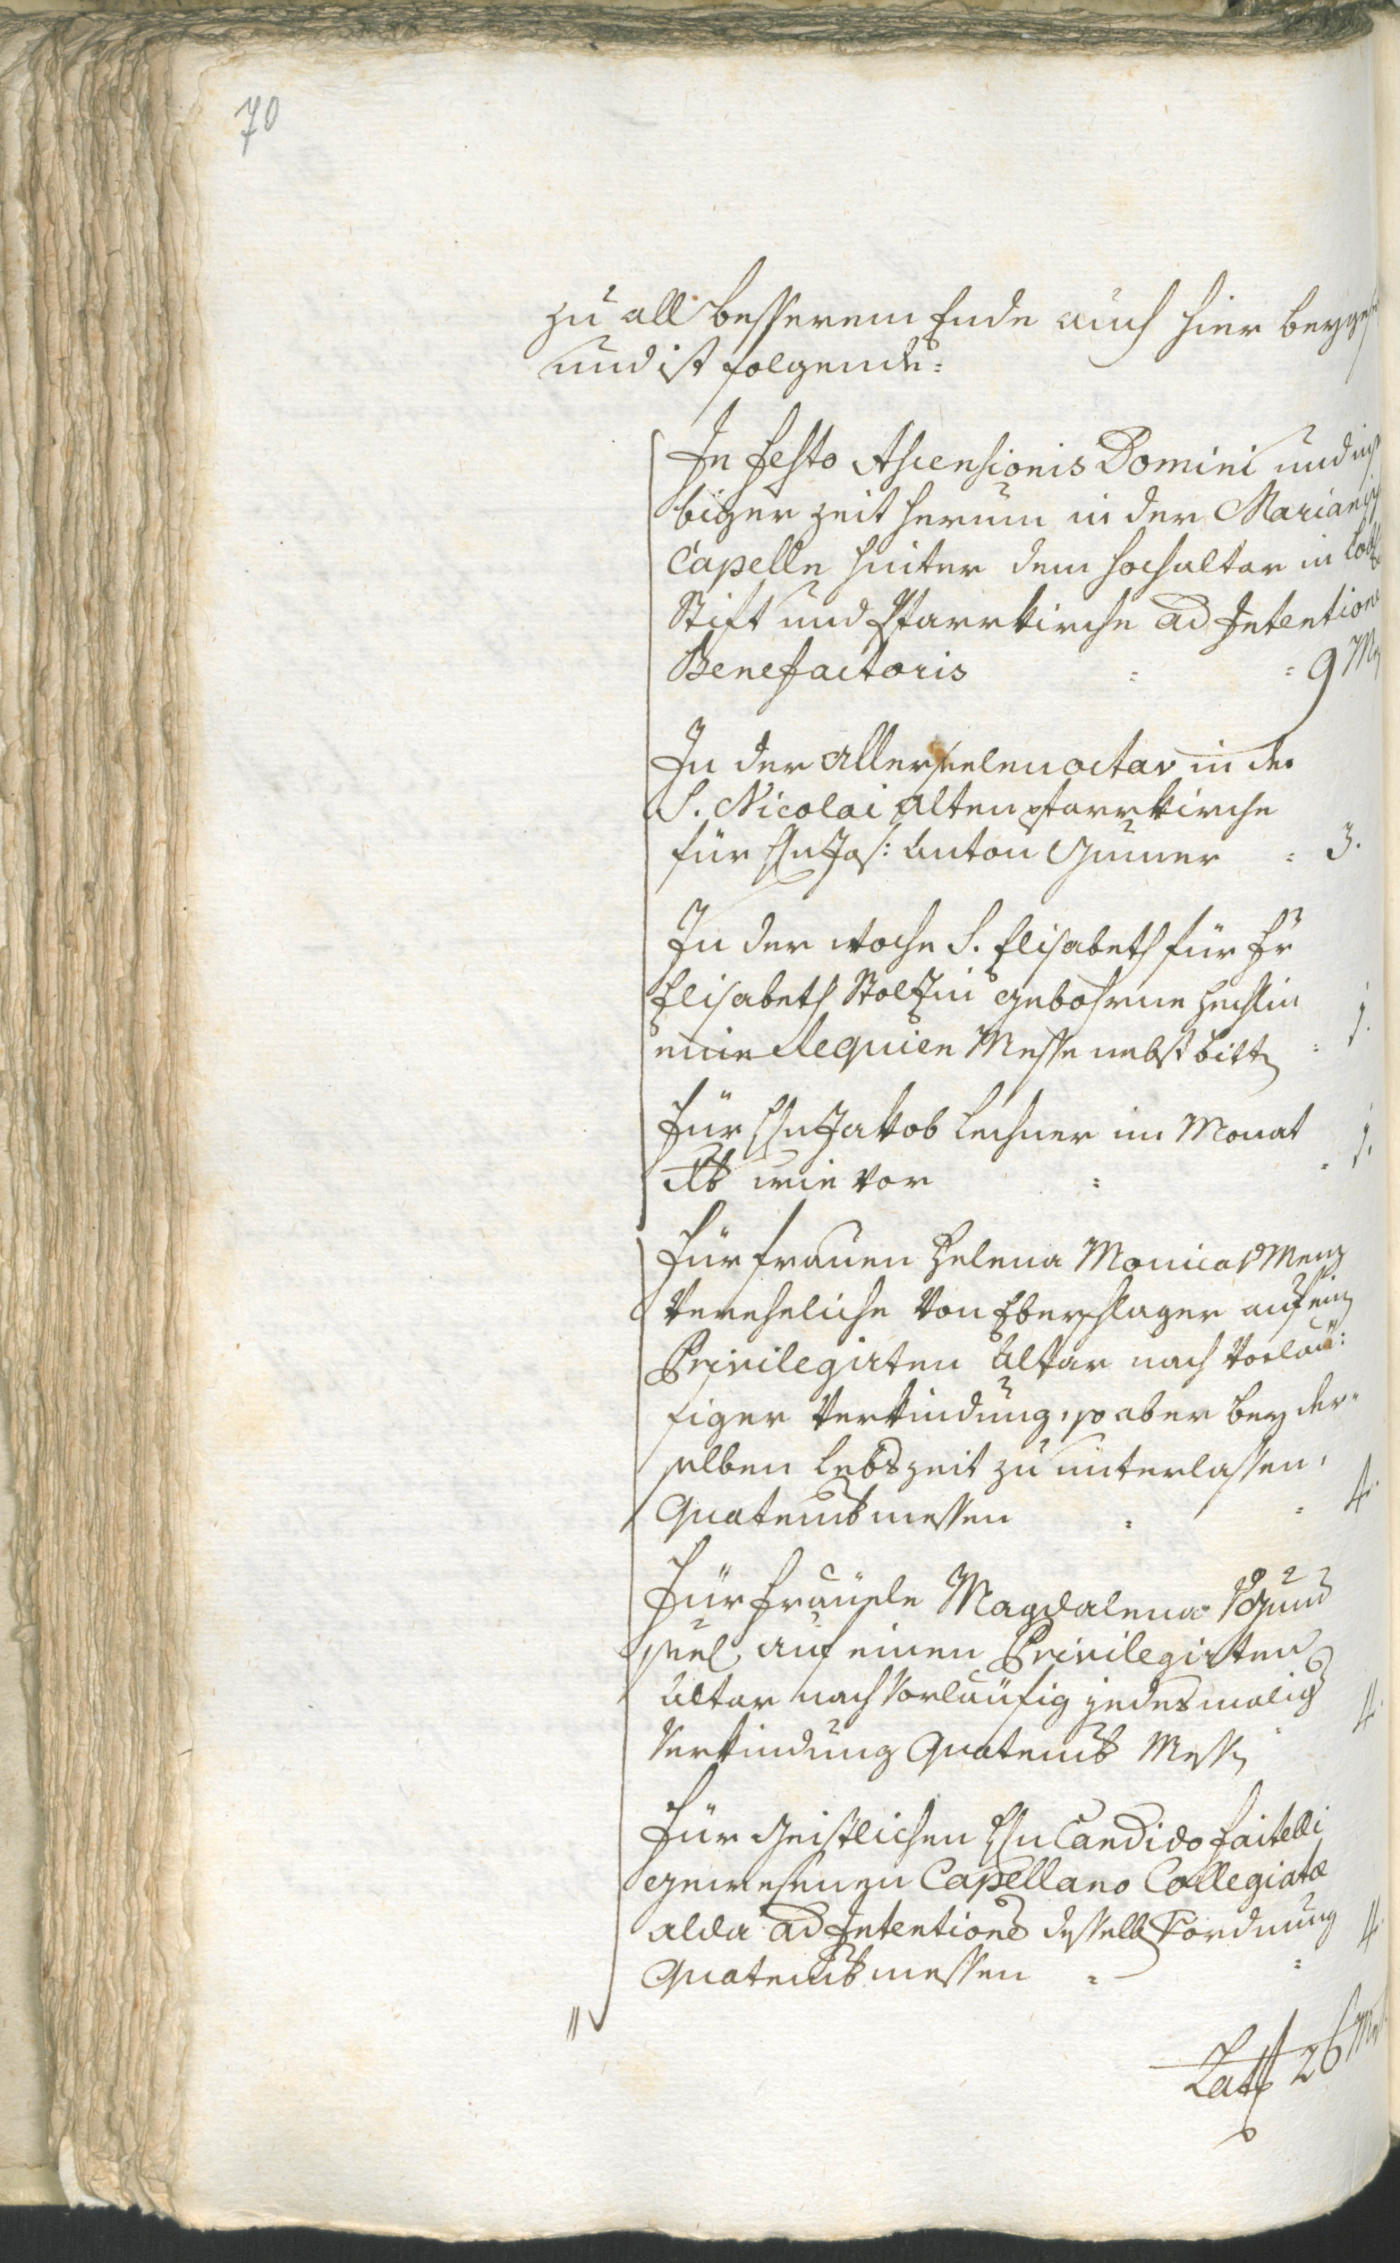 70
zu all besserem Ende auch hier beyges
und ist folgende:
In Festo Ascensionis Domini und
biger Zeit herum in der Marianisch
Capelle hinter dem Hochaltar in
Stift und Pfarrkirche ad Intention
Benefactoris = = 9 Me
In der Allerseelenoctav in der
S. Nicolai alten Pfarrkirche
für Hn Jos: Anton Gumer = 3.
In der Woche S. Elisabeth für Fr
Elisabeth Stolzin gebohrne
eine Requien Messe nebst bitt = 1.
Für Hn Jakob Lechner im Monat
wie vor = = 1.
Für Frauen Helena Monica v Menz
Verehelichte von Eberschlager auf ein
Privilegirten Altar nach Vorläu:
figer Verkindung, so aber bey der=
selben Lebszeit zu unterlassen,
Quatembmessen = = 4.
Für Fräule Magdalena v
auf einen Privilegirten
Altar nach Vorläufig jedesmalig
Verkindung Quatemb Mess 4.
Für Geistlichen Hn Candido Faitelli
gewesenen Capellano Collegiatæ
alda ad Intentione desselb Vordnung 4
Quatembmessen = =
Latus 26 Me